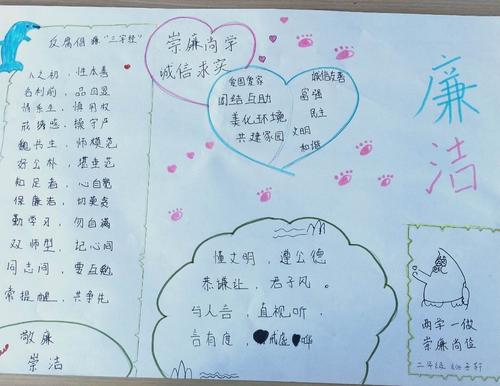 反腐倡廉“三字经”
人之初，性本善
名利前，品自显
情系生，慎用权
戒诱惑，操守严
魏共生，师模范
好公朴，堪垂范
知足者，心自宽
保廉者，切莫贪
勤学习，勿自满
双师型，记心间
同志间，要互勉
常提醒，共争先
敬廉
崇洁
崇廉尚学
诚信求实
爱国爱家
团结互助
美化环境
共建家园
诚信友善
富强
民主
文明
和谐
廉
洁
懂文明，遵公德
恭谦让，君子风。
与人言，直视听
言有度，戒
两学一做
崇廉尚位
二年级